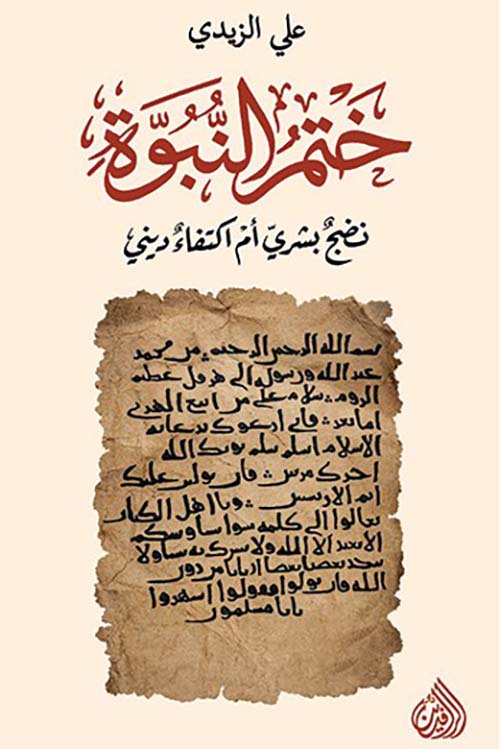 علي الزيدي
ختم النُّبُوَّةِ
نضجٌ بشريّ أم اكتفاءٌ ديني
بسم الله الرحمن الرحيم من محمد
عبد الله ورسوله الى هرقل عظيم
الروم سلام على من اتبع الهدى
اما بعد فاني ادعوك بدعاية
الاسلام اسلم تسلم يوتك الله
اجرك مرتين فان توليت عليك
اثم الاريسين ويا اهل الكتاب
تعالوا الى كلمة سوا بيننا وبينكم
الا نعبد الا الله ولا نشرك به شيا ولا
يتخذ بعضنا بعضا اربابا من دون
الله فان تولوا فقولوا اشهدوا
بانا مسلمون
دار الرافدين